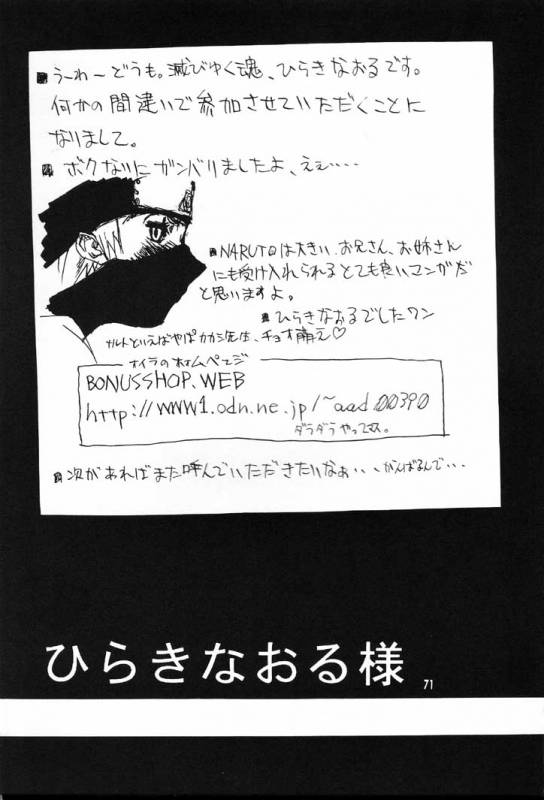 う〜わ〜どうも。滅びゆく魂、ひらきなおるです。
何かの間違いで参加させていただくことに
なりまして。
ボクなりにガンバリましたよ、えぇ・・・・
NARUTOは大きい お兄さん、お姉さん
にも受け入れられるとても良いマンガだ
と思いますよ。
ひらきなおるでしたワン
ナルトといえばやっぱカカシ先生、チョオ萌え♡
オイラのホームページ
BONUSSHOP.WEB
http://www1.odn.ne.jp/~aad00390
ダラダラやってます。
次があればまた呼んでいただきたいなぁ、、がんばるんで・・・
ひらきなおる様
71